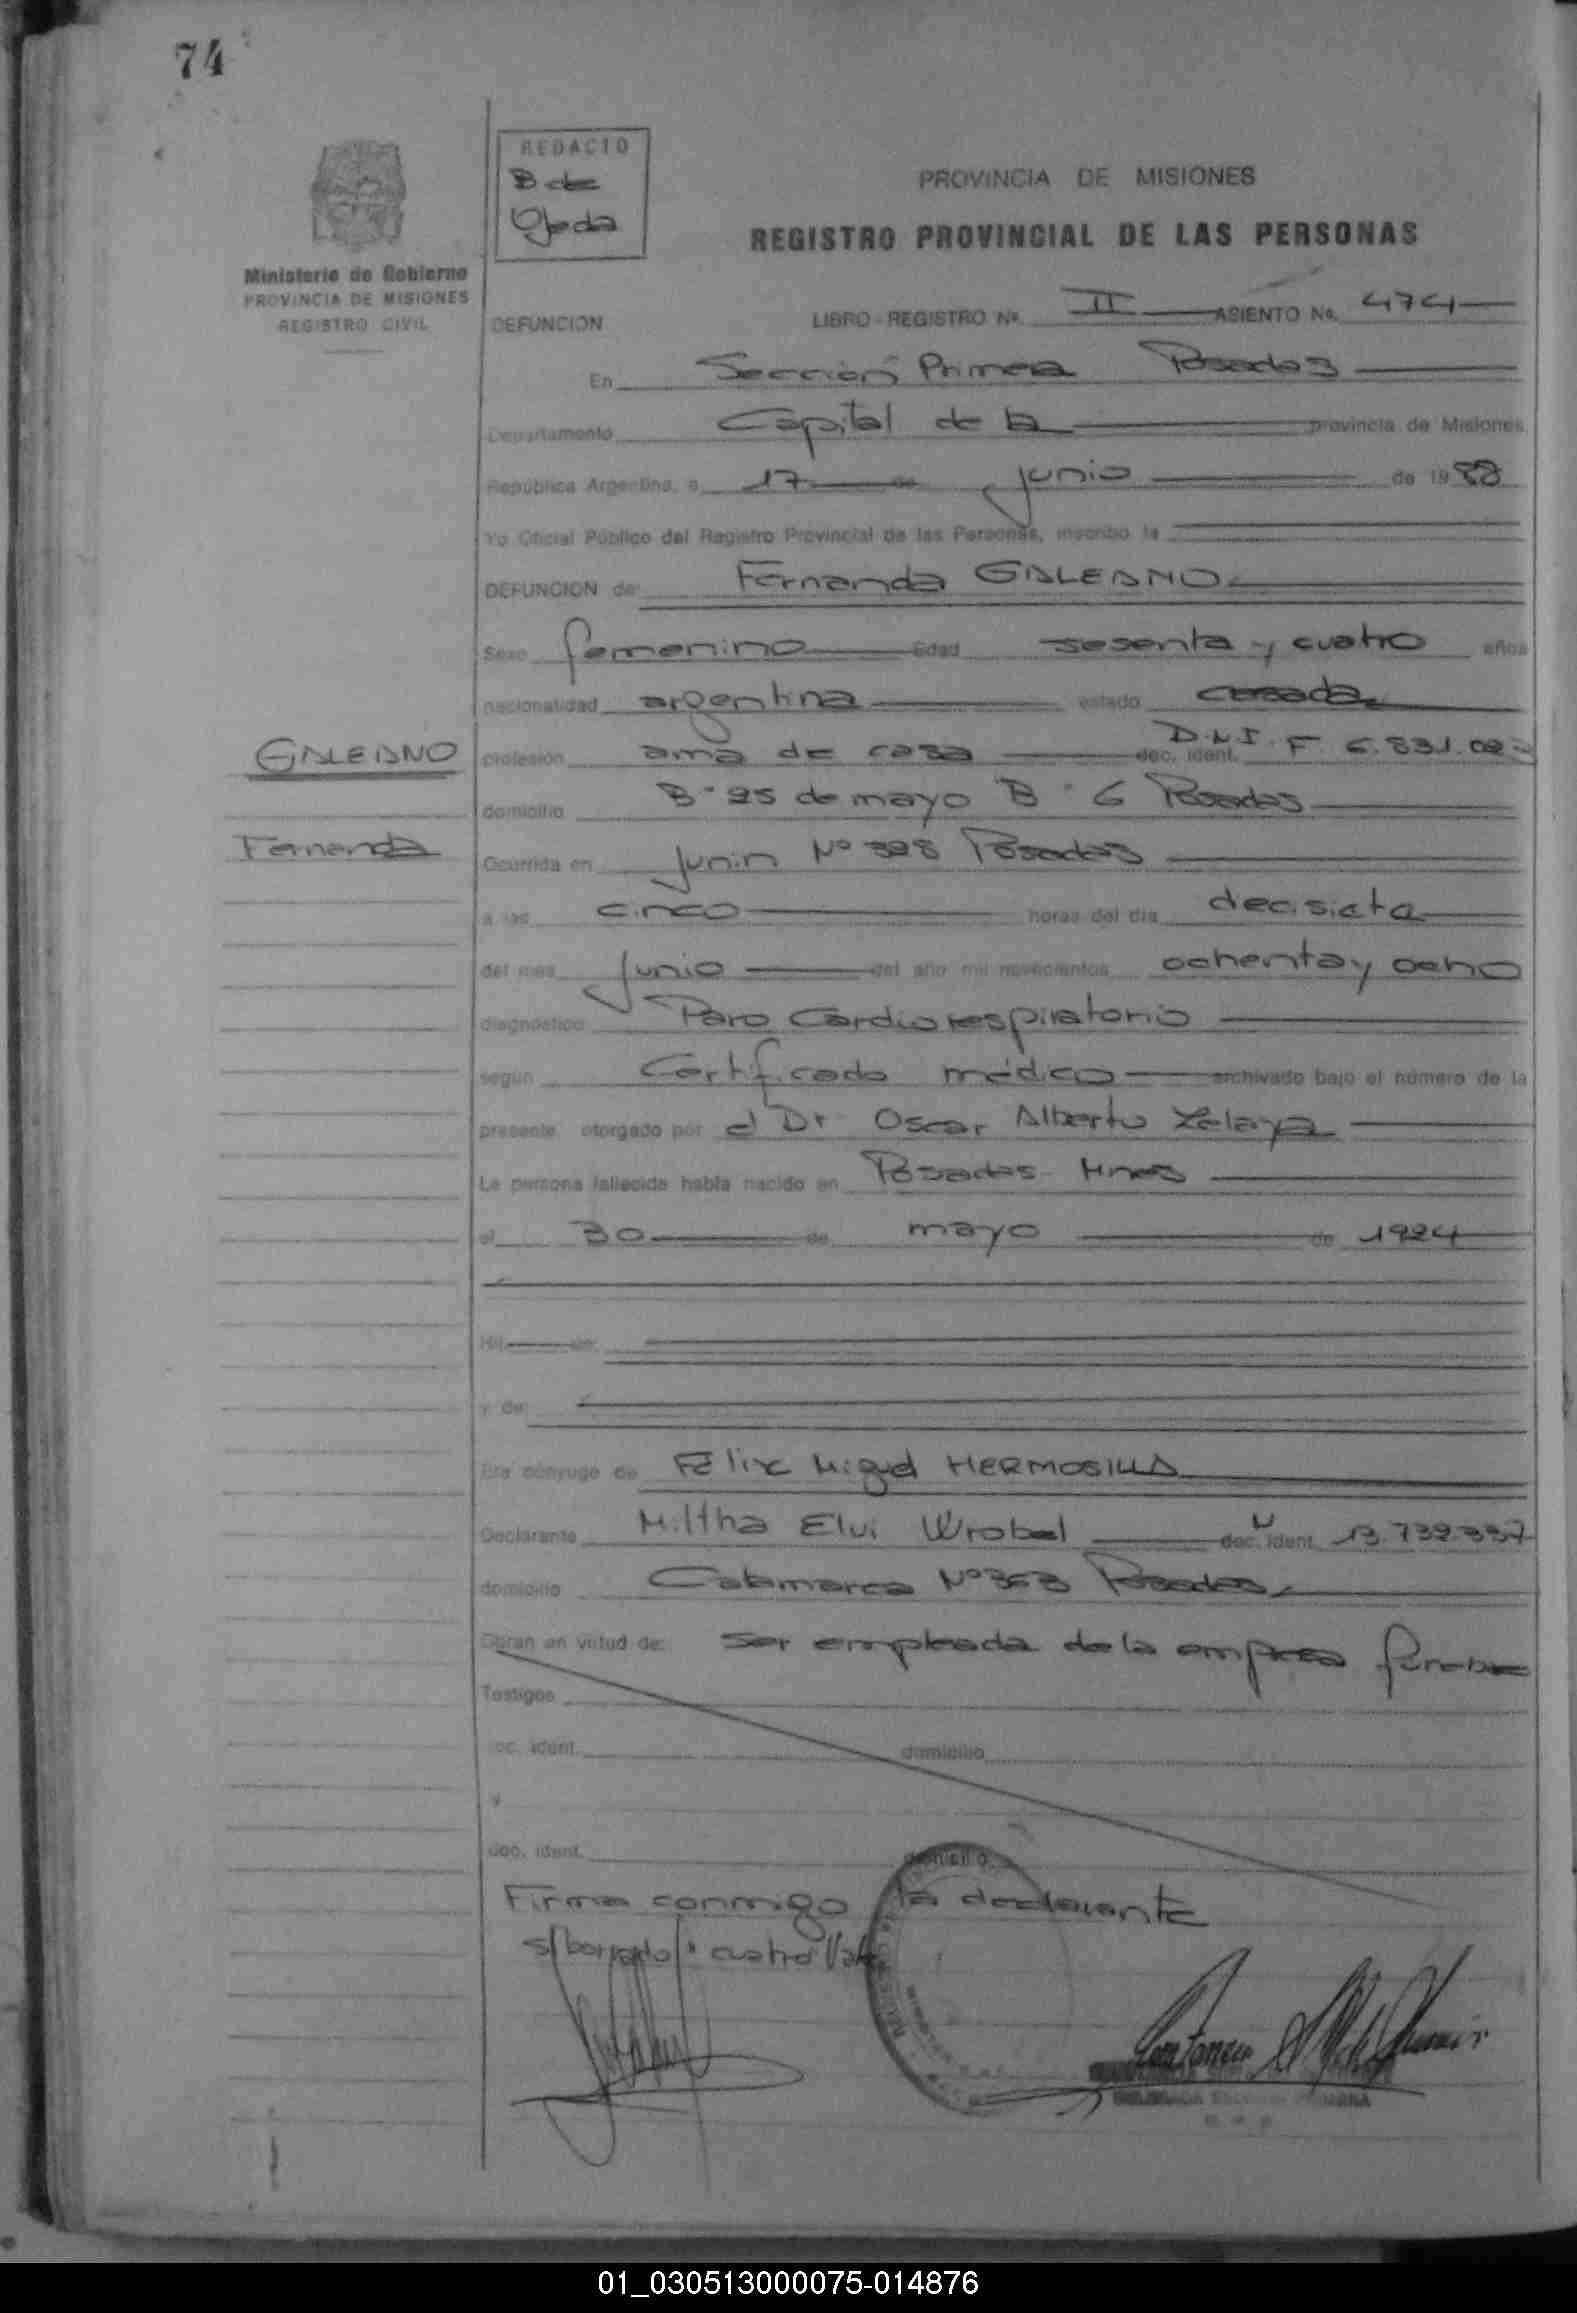 74
REDACTO
B de
Ojeda
Ministerio de Gobierno
PROVINCIA DE MISIONES
REGISTRO CIVIL
PROVINCIA DE MISIONES
REGISTRO PROVINCIAL DE LAS PERSONAS
DEFUNCION LIBRO - REGISTRO Nº II ASIENTO No. 474
En Sección Primera Posadas
Departamento Capital de la provincia de Misiones,
República Argentina, a 17 de junio de 1988
Yo Oficial Público del Registro Provincial de las Personas, inscribo la
DEFUNCION de: Fernanda GALEANO
Sexo femenino Edad sesenta y cuatro años
nacionalidad argentina estado casada
profesión ama de casa doc. ident. D.N.I. F 6.831.02
domicilio Bº 25 de mayo B 6 Posadas
Ocurrida en Junin Nº 328 Posadas
a las cinco horas del día decisiete
del mes junio del año mil novecientos ochenta y ocho
diagnóstico Paro Cardiorespiratorio
según Certificado médico archivado bajo el número de la
presente, otorgado por el Dr Oscar Alberto Zelaya
La persona fallecida había nacido en Posadas Mnes
el 30 de mayo de 1924
Hij de:
y de
Era cónyuge de Felix Miguel HERMOSILLA
Declarante Miltha Elvi Wrobel doc. ident. 13.739.337
domicilio Catamarca Nº 363 Posadas
Obran en virtud de: ser empleada de la empresa funebre
Testigos
doc. ident. domicilio
y
doc. ident. domicilio
Firma conmigo la declarante
s/borrado: cuatro Vale
GALEANO
Fernanda
01_030513000075-014876